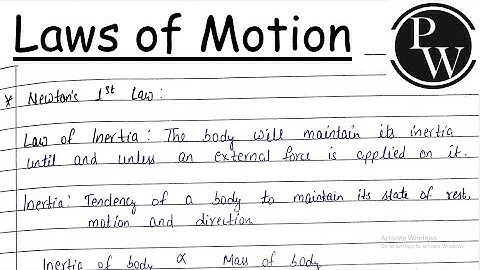 Laws of Motion
PW
* Newton's 1st Law :
Law of Inertia : The body will maintain its inertia
until and unless an external force is applied on it.
Inertia : Tendency of a body to maintain its state of rest,
motion and direction
Activate Windows
Go to Settings to activate Windows.
Inertia of body ∝ Mass of body